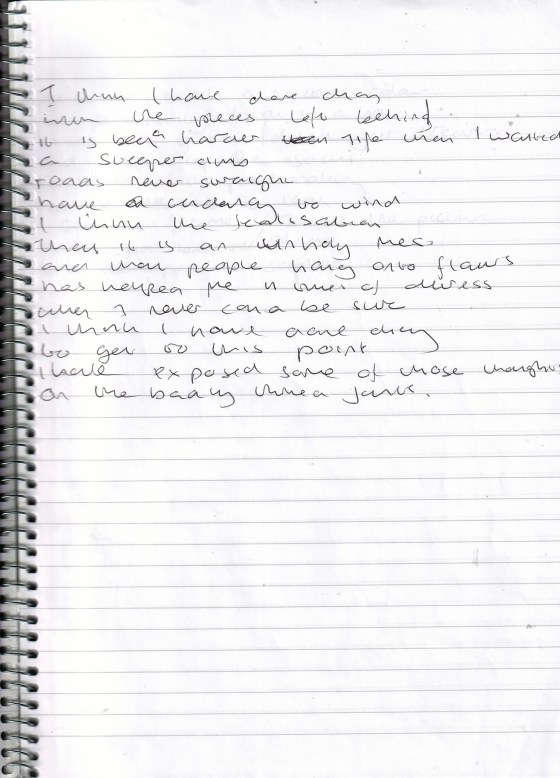 I think I have done okay
with the pieces left behind
it is been a harder life then I wanted
a steeper climb
roads never straight
have a tendency to wind
I think the realisation
that it is an unholy mess
and that people hang onto flaws
has helped me in times of distress
when I never could be sure
I think I have done okay
to get to this point
I have exposed some of those thoughts
on the